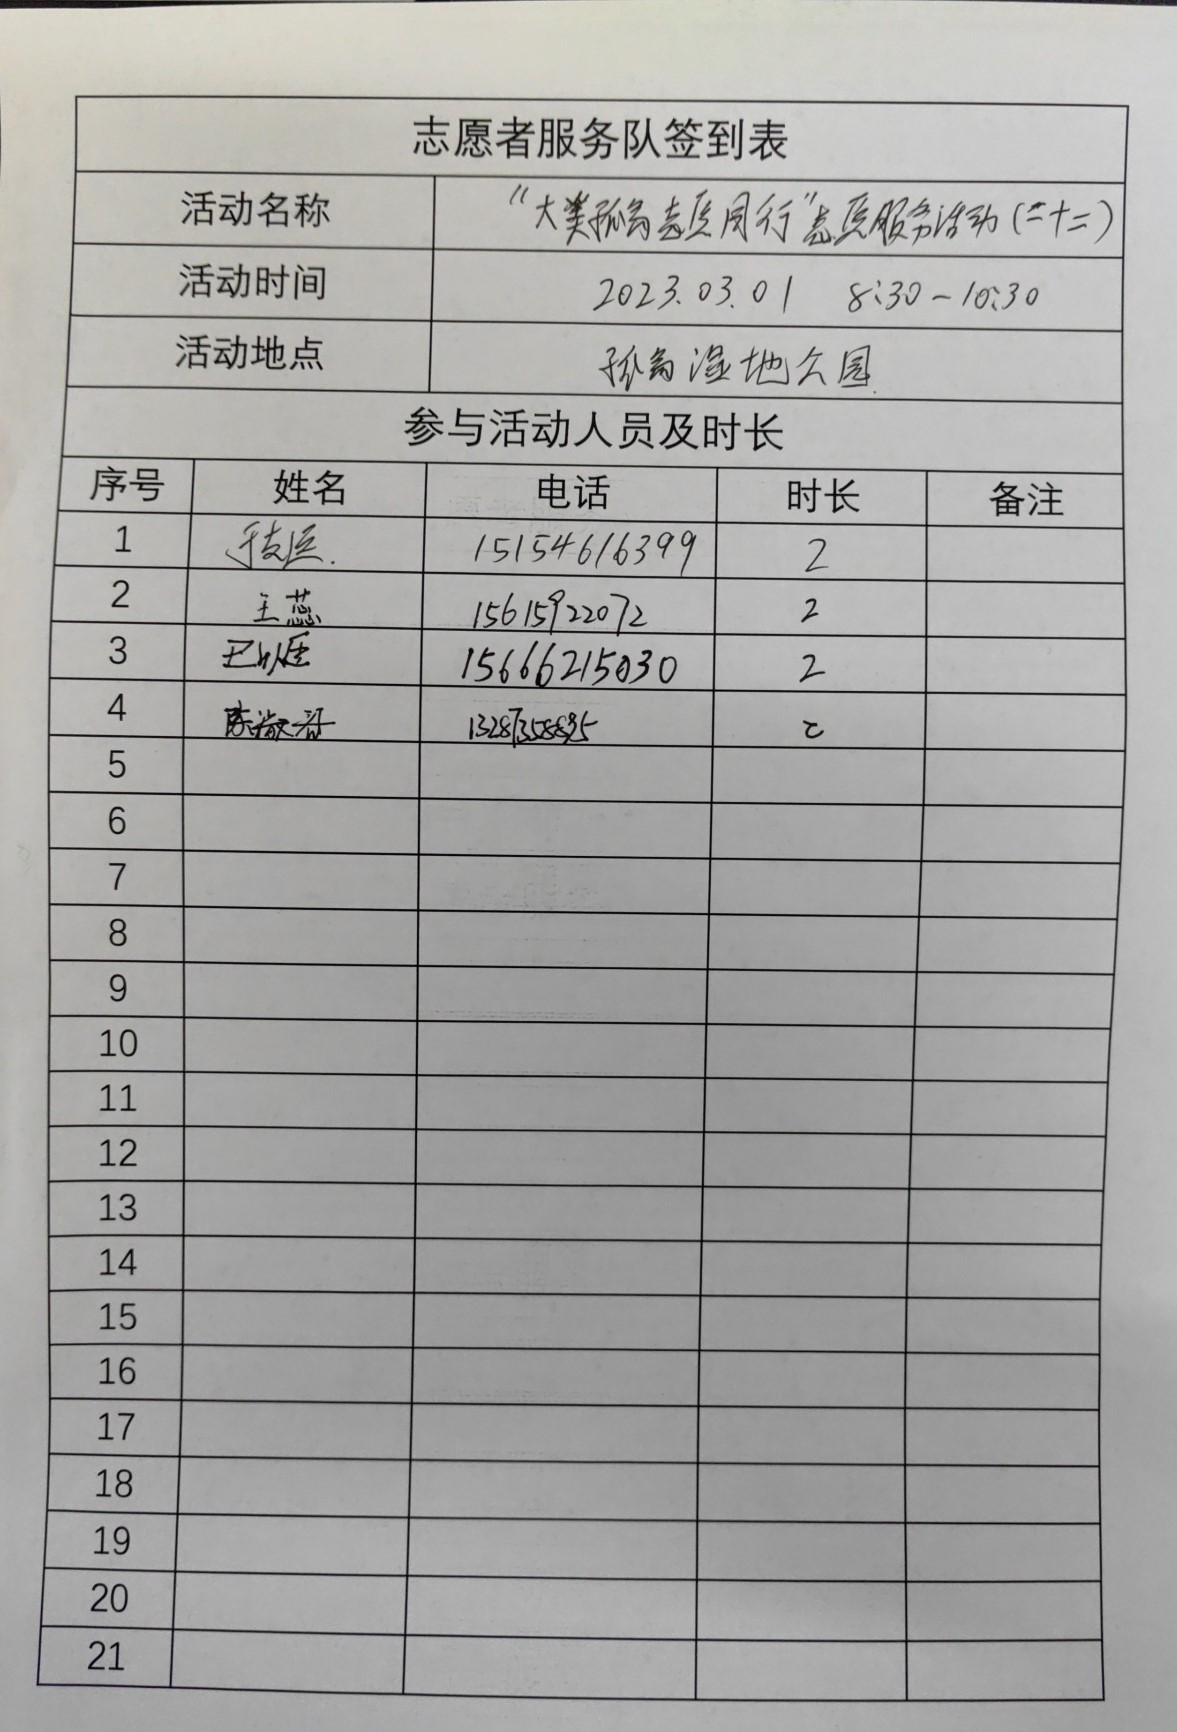 志愿者服务队签到表
活动名称 “大美孤岛志愿同行”志愿服务活动(二十二)
活动时间 2023.03.01 8:30-10:30
活动地点 孤岛湿地公园
参与活动人员及时长
序号 姓名 电话 时长 备注
1 15154616399 2
2 王蕊 15615922072 2
3 15666215030 2
4 陈淑香 2
5
6
7
8
9
10
11
12
13
14
15
16
17
18
19
20
21